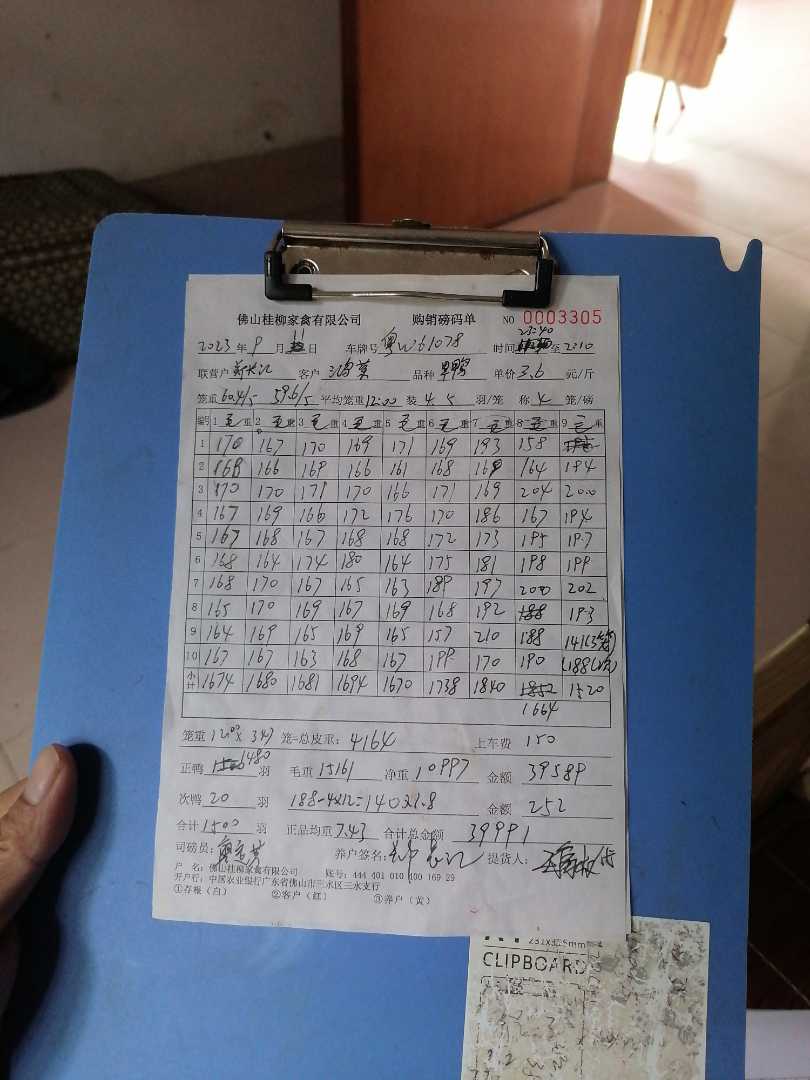 佛山桂柳家禽有限公司 购销磅码单 NO 0003305
23:40
2023 年 9 月 11 日 车牌号 粤W61078 时间 至 2:10
联营户 客户 鸿业 品种 旱鸭 单价 3.6 元/斤
笼重 60.4/5 59.6/5 平均笼重 12.00 装 4.5 羽/笼 称 4 笼/磅
编号 1 毛重 2 毛重 3 毛重 4 毛重 5 毛重 6 毛重 7 毛重 8 毛重 9 毛重
1 170 167 170 169 171 169 193 158
2 168 166 169 166 161 168 169 164 184
3 170 170 171 170 166 171 169 204 200
4 167 169 166 172 176 170 186 167 194
5 167 168 167 168 168 172 173 195 197
6 168 164 174 180 164 175 181 198 199
7 168 170 167 165 163 189 197 200 202
8 165 170 169 167 169 168 192 188 193
9 164 169 165 169 165 157 210 188 141(3笼)
10 167 167 163 168 167 199 170 190 (188(4笼)
小计 1674 1680 1681 1694 1670 1738 1840 1852 1520
1664
笼重 12.00 x 347 笼=总皮重: 4164 上车费 150
正鸭 1480 羽 毛重 15161 净重 10997 金额 39589
次鸭 20 羽 188-4x12=140x1.8 金额 252
合计 1500 羽 正品均重 7.43 合计总金额 39991
司磅员: 养户签名: 提货人:
户 名: 佛山桂柳家禽有限公司 账号: 444 401 010 400 169 29
开户行: 中国农业银行广东省佛山市三水区三水支行
①存根(白) ②客户(红) ③养户(黄)
CLIPBOARD